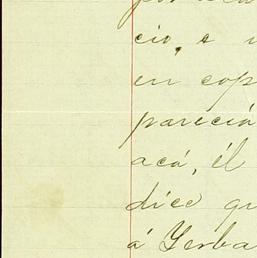 cio, a
en cop
pareció
acá, él
dice qu
á Yerba